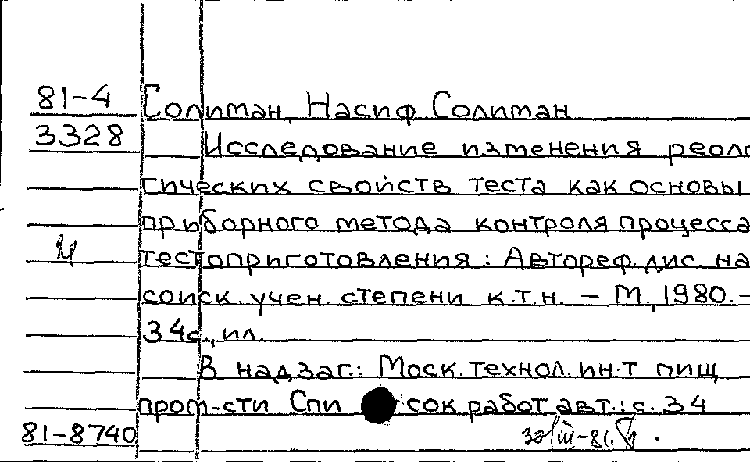 81-4
3328
Солиман, Насиф Солиман
Исследование изменения реоло
гических свойств теста как основы
приборного метода контроля процесса
тестоприготовления: Автореф. дис. на
соиск. учен. степени к.т.н. – М., 1980.–
34с., ил.
В надзаг.: Моск. технол. ин-т пищ
пром-сти Спи сок работ авт.: с. 34
81-8740